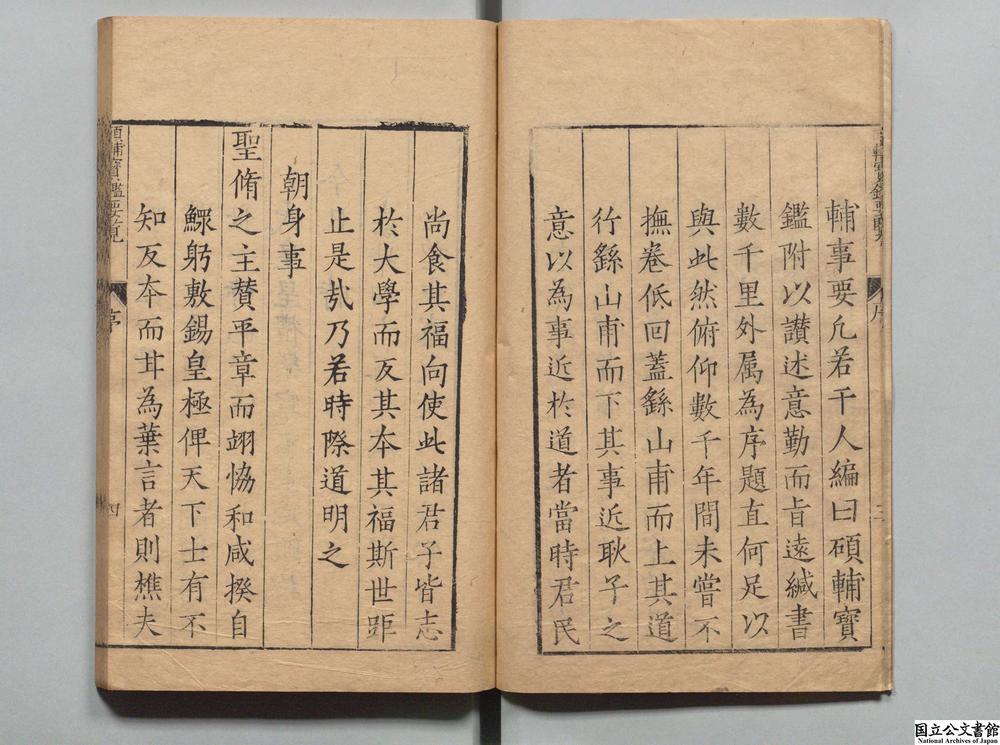 輔事要凢若干人編曰碩輔寳
鑑附以讃述意勤而㫖遠緘書
數千里外属為序題直何足以
與此然俯仰數千年間未嘗不
撫卷低回蓋繇山甫而上其道
行繇山甫而下其事近耿子之
意以為事近於道者當時君民
序
三
尚食其福向使此諸君子皆志
於大學而反其本其福斯世距
止是㢤乃若時際道明之
朝身事
聖脩之主賛平章而翊恊和咸揆自
鰥躬敷錫皇極俾天下士有不
知反本而耳為葉言者則樵夫
碩輔寳鑑要覽
序
四
国立公文書館
National Archives of Japan